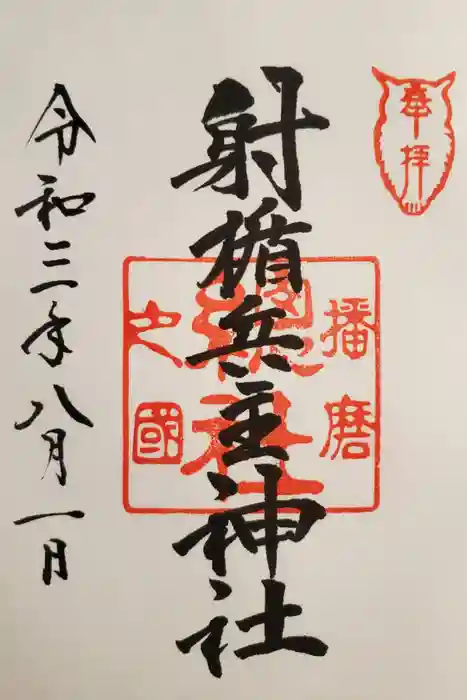 奉拝
射楯兵主神社
播磨
総社
之國
令和三年八月一日